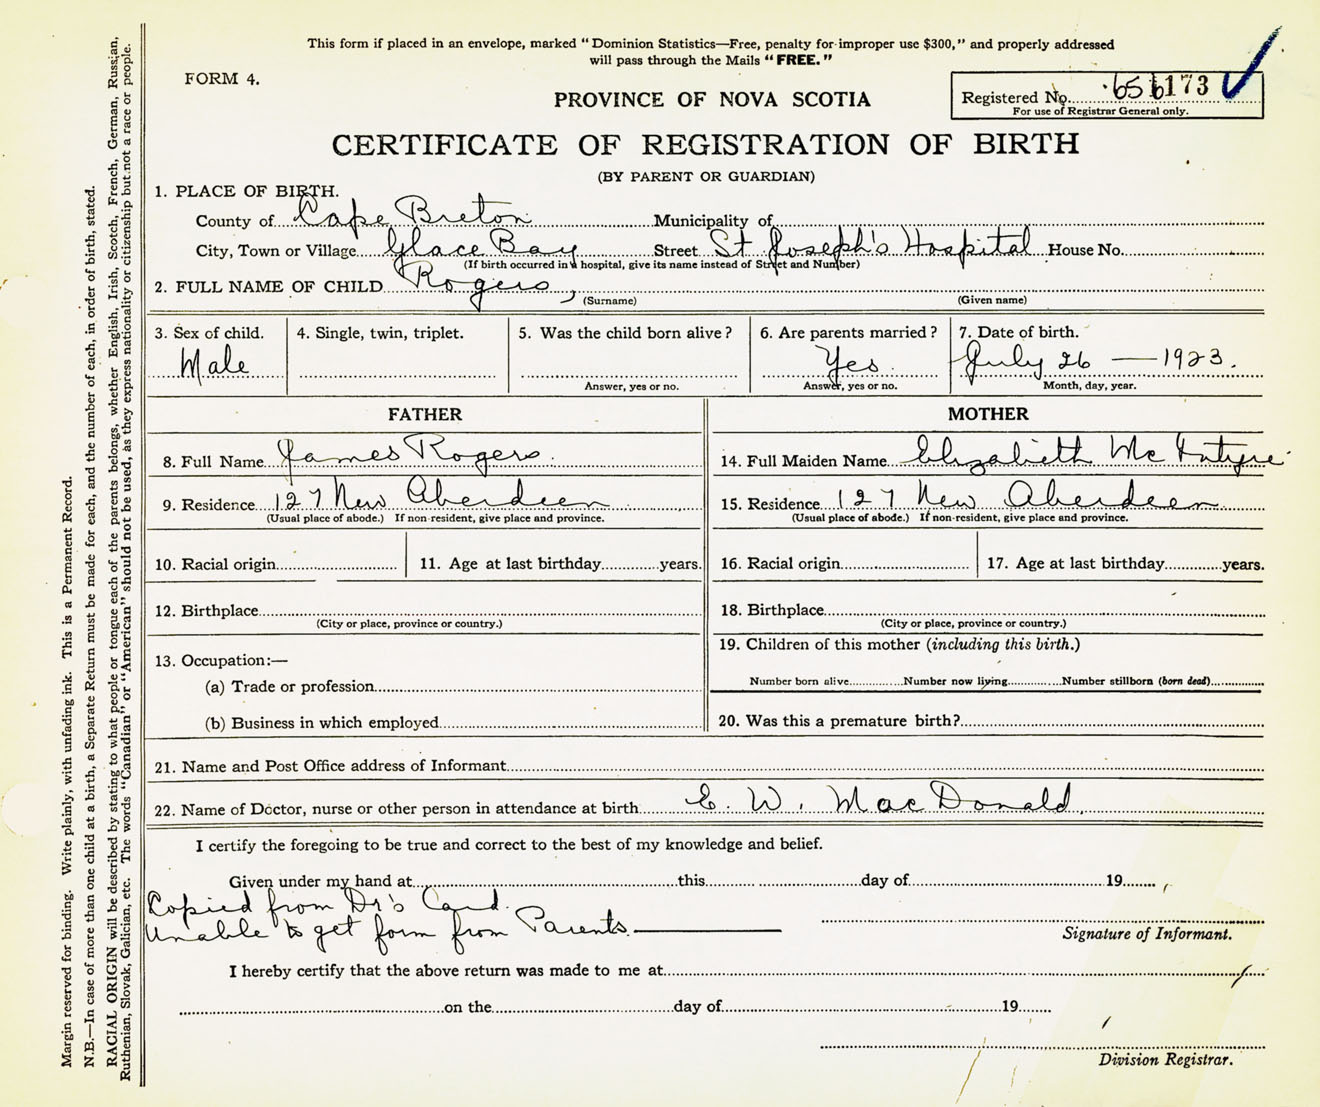 This form if placed in an envelope, marked "Dominion Statistics—Free, penalty for improper use $300," and properly addressed
will pass through the Mails "FREE."
FORM 4.
Registered No. 173
For use of Registrar General only.
PROVINCE OF NOVA SCOTIA
CERTIFICATE OF REGISTRATION OF BIRTH
(BY PARENT OR GUARDIAN)
1. PLACE OF BIRTH.
County of Cape Breton Municipality of
City, Town or Village Glace Bay Street St Joseph's Hospital House No.
(If birth occurred in a hospital, give its name instead of Street and Number)
2. FULL NAME OF CHILD Rogers,
(Surname) (Given name)
3. Sex of child. 4. Single, twin, triplet. 5. Was the child born alive? 6. Are parents married? 7. Date of birth.
Male Yes July 26 — 1923.
Answer, yes or no. Answer, yes or no. Month, day, year.
FATHER MOTHER
8. Full Name James Rogers. 14. Full Maiden Name Elizabieth McIntyre
9. Residence 127 New Aberdeen 15. Residence 127 New Aberdeen
(Usual place of abode.) If non-resident, give place and province. (Usual place of abode.) If non-resident, give place and province.
10. Racial origin 11. Age at last birthday years. 16. Racial origin 17. Age at last birthday years.
12. Birthplace 18. Birthplace
(City or place, province or country.) (City or place, province or country.)
13. Occupation:— 19. Children of this mother (including this birth.)
(a) Trade or profession Number born alive Number now living Number stillborn (born dead)
(b) Business in which employed 20. Was this a premature birth?
21. Name and Post Office address of Informant
22. Name of Doctor, nurse or other person in attendance at birth E. W. MacDonald
I certify the foregoing to be true and correct to the best of my knowledge and belief.
Given under my hand at this day of 19
Copied from Dr's Card.
Unable to get form from Parents.
Signature of Informant.
I hereby certify that the above return was made to me at
on the day of 19
Division Registrar.
Margin reserved for binding. Write plainly, with unfading ink. This is a Permanent Record.
N.B.—In case of more than one child at a birth, a Separate Return must be made for each, and the number of each, in order of birth, stated.
RACIAL ORIGIN will be described by stating to what people or tongue each of the parents belongs, whether English, Irish, Scotch, French, German, Russian,
Ruthenian, Slovak, Galician, etc. The words "Canadian" or "American" should not be used, as they express nationality or citizenship but not a race or people.